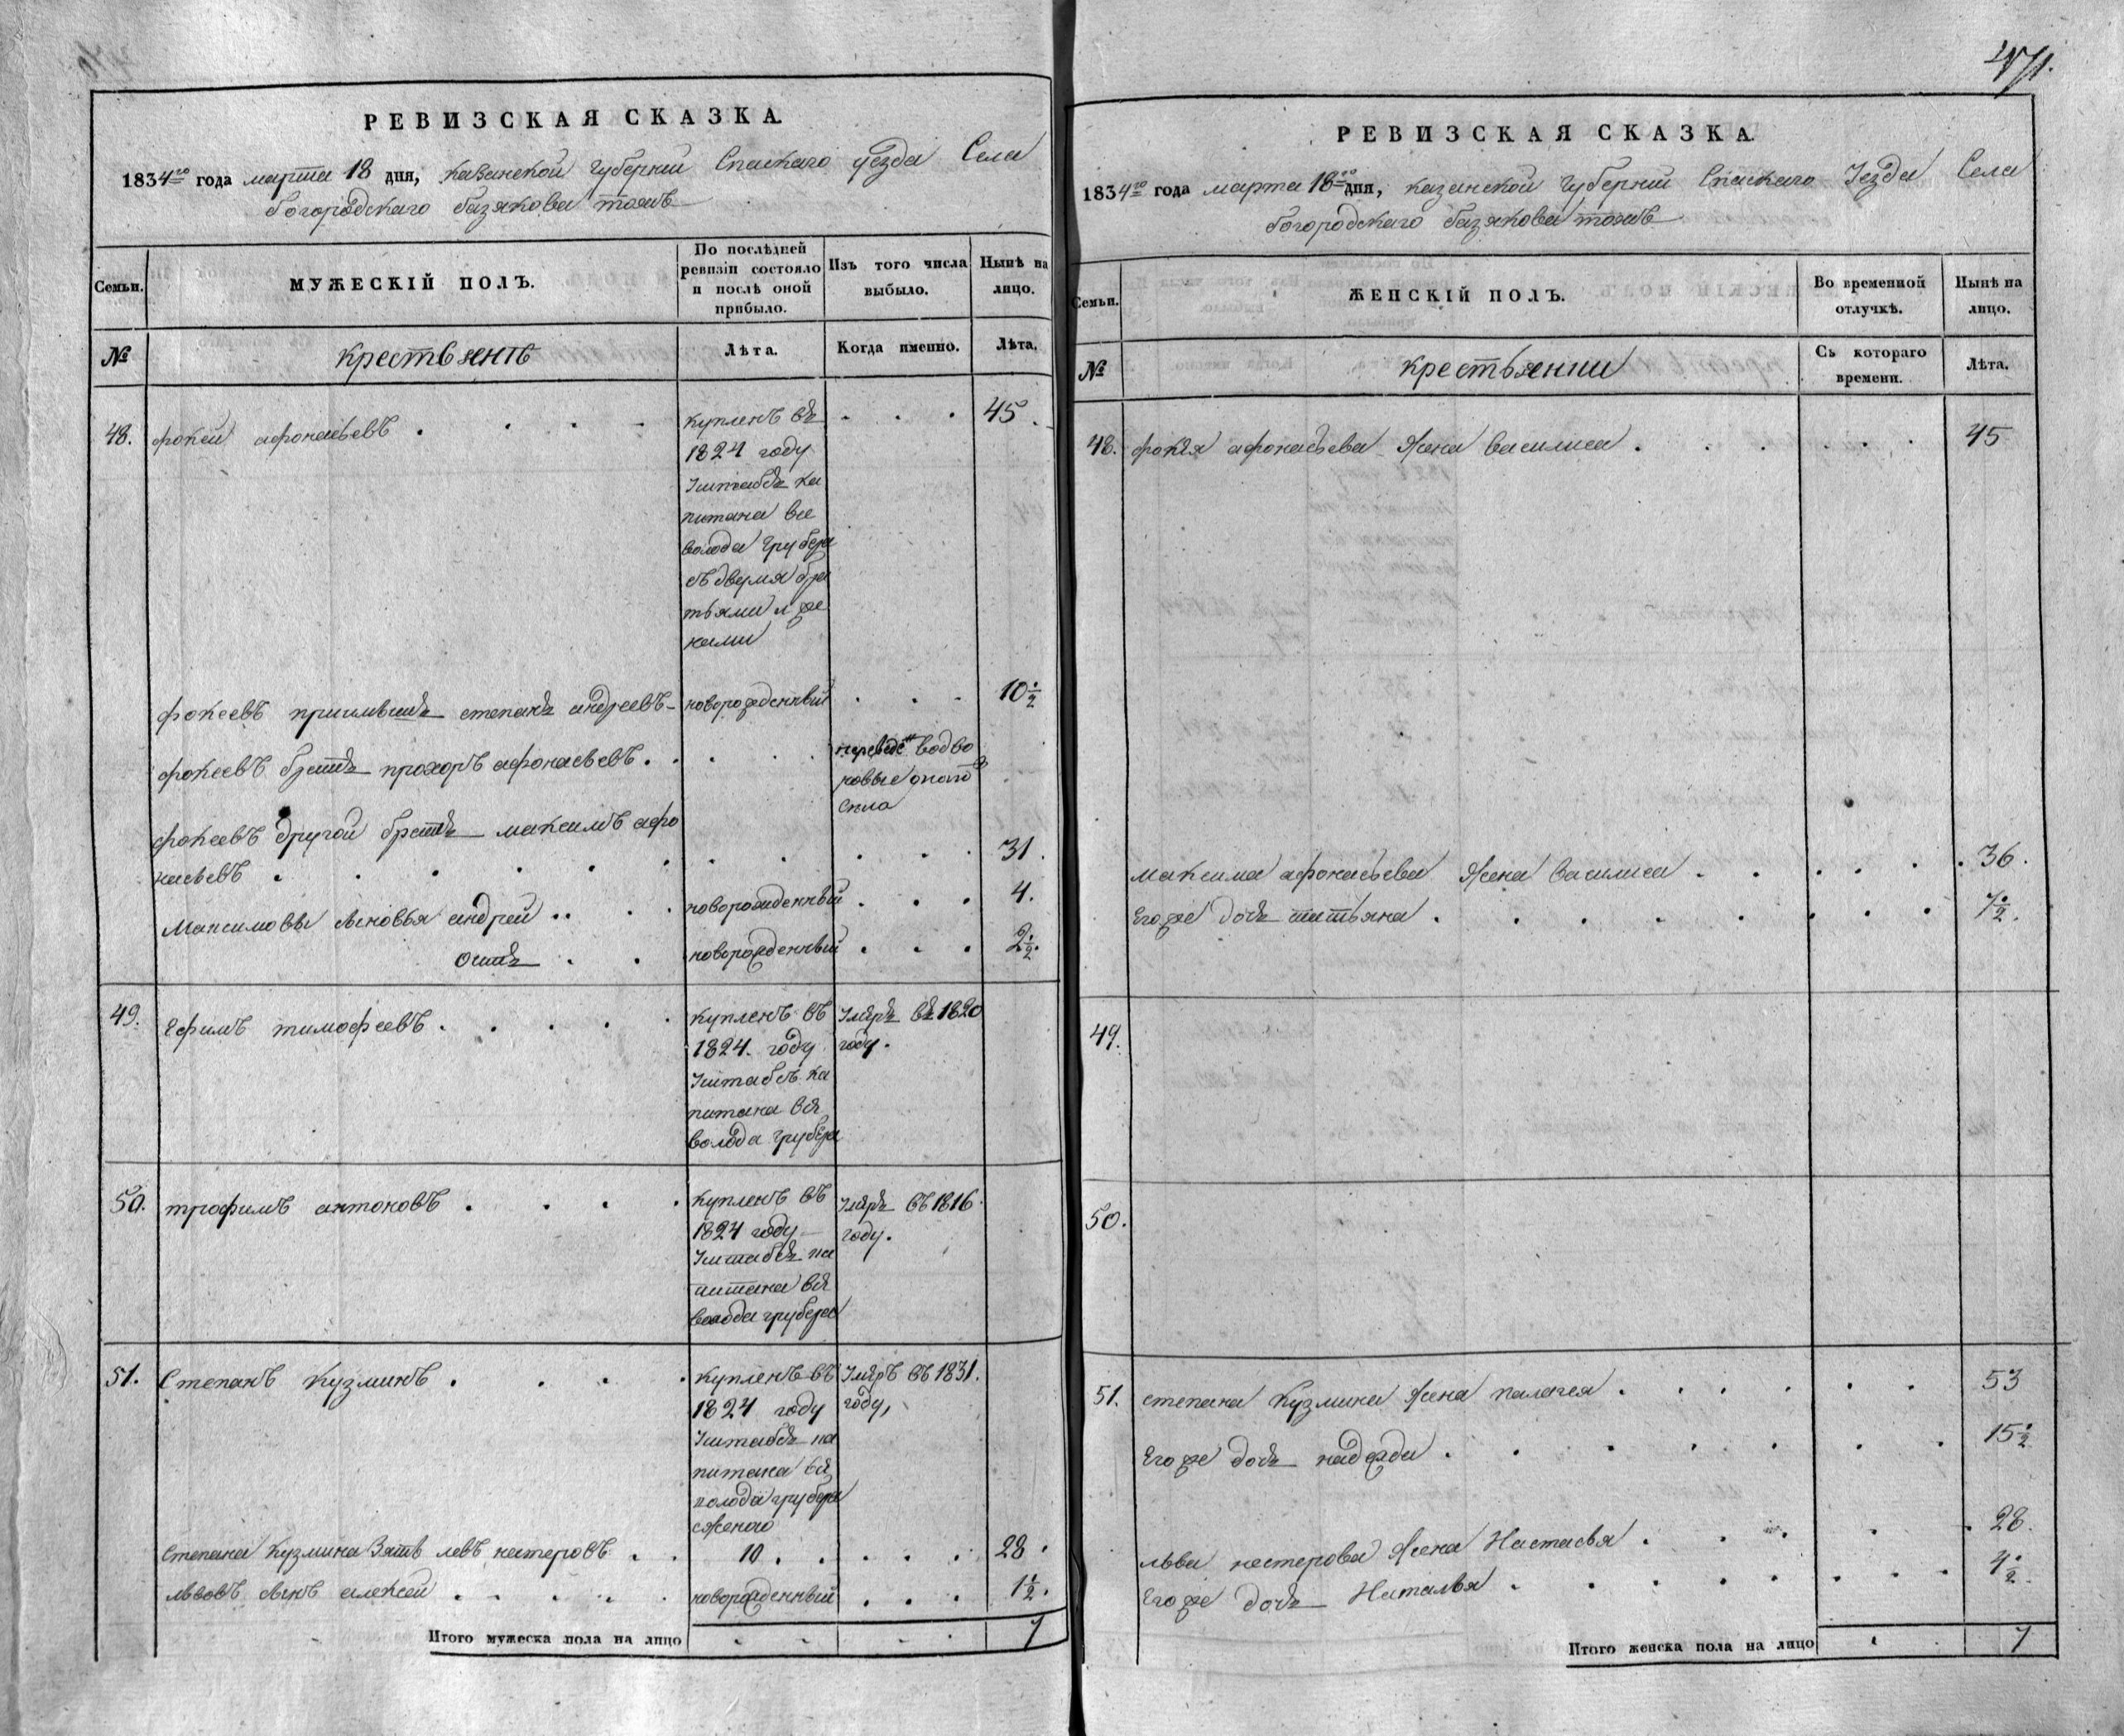 471.
РЕВИЗСКАЯ СКАЗКА.
1834го года марта 18 дня, казанской Губернии Спаскаго уезда Села
богородскаго базякова тожъ
Семьи.
МУЖЕСКІЙ ПОЛЪ.
По послѣдней
ревизіи состояло
и послѣ оной
прибыло.
Изъ того числа
выбыло.
Нынѣ на
лицо.
№
крестьянъ
Лѣта.
Когда именно.
Лѣта.
48. фокей афонасьевъ
купленъ въ
1824 году
Уштабъ ка
питана все
волода грубера
съ двумя бра
тьями и же
нами
45
фокеевъ степанъ андреевъ
новорожденный
10 1/2
фокеевъ братъ прохоръ афонасьевъ
фокеевъ другой братъ максимъ афо
насьевъ
31.
Максимовы сыновья андрей
новорожденный
4.
осипъ
новорожденный
2 1/2.
49. Ефимъ тимофеевъ
купленъ въ
1824. году
Уштабсъ ка
питана все
волода грубера
Умѣръ въ 1820
году.
50. трофимъ антоновъ
купленъ въ
1824 году
Уштабсъ ка
питана все
волода грубера
Умѣръ въ 1816
году.
51. Степанъ Кузминъ
купленъ въ
1824 году
Уштабсъ ка
питана все
волода грубера
сженою
Умѣръ въ 1831.
году,
Степана Кузмина Зять левъ нестеровъ
10
28.
львовъ сынъ алексей
новорожденный
1 1/2.
Итого мужеска пола на лицо
7
РЕВИЗСКАЯ СКАЗКА.
1834го года марта 18го дня, казанской Губернии Спаскаго Уезда Села
богородскаго базякова тожъ
Семьи.
ЖЕНСКІЙ ПОЛЪ.
Во временной
отлучкѣ.
Нынѣ на
лицо.
№
крестьянки
Съ котораго
времени.
Лѣта.
48. фокѣя афонасьева Жена василиса
45
максима афонасьева Жена василиса
36.
Егоже дочь татьяна
7 1/2.
49.
50.
51. степана Кузмина Жена палагея
53
Егоже дочь надежда
15 1/2
льва нестерова Жена Настасья
28.
Егоже дочь Наталья
4 1/2.
Итого женска пола на лицо
7